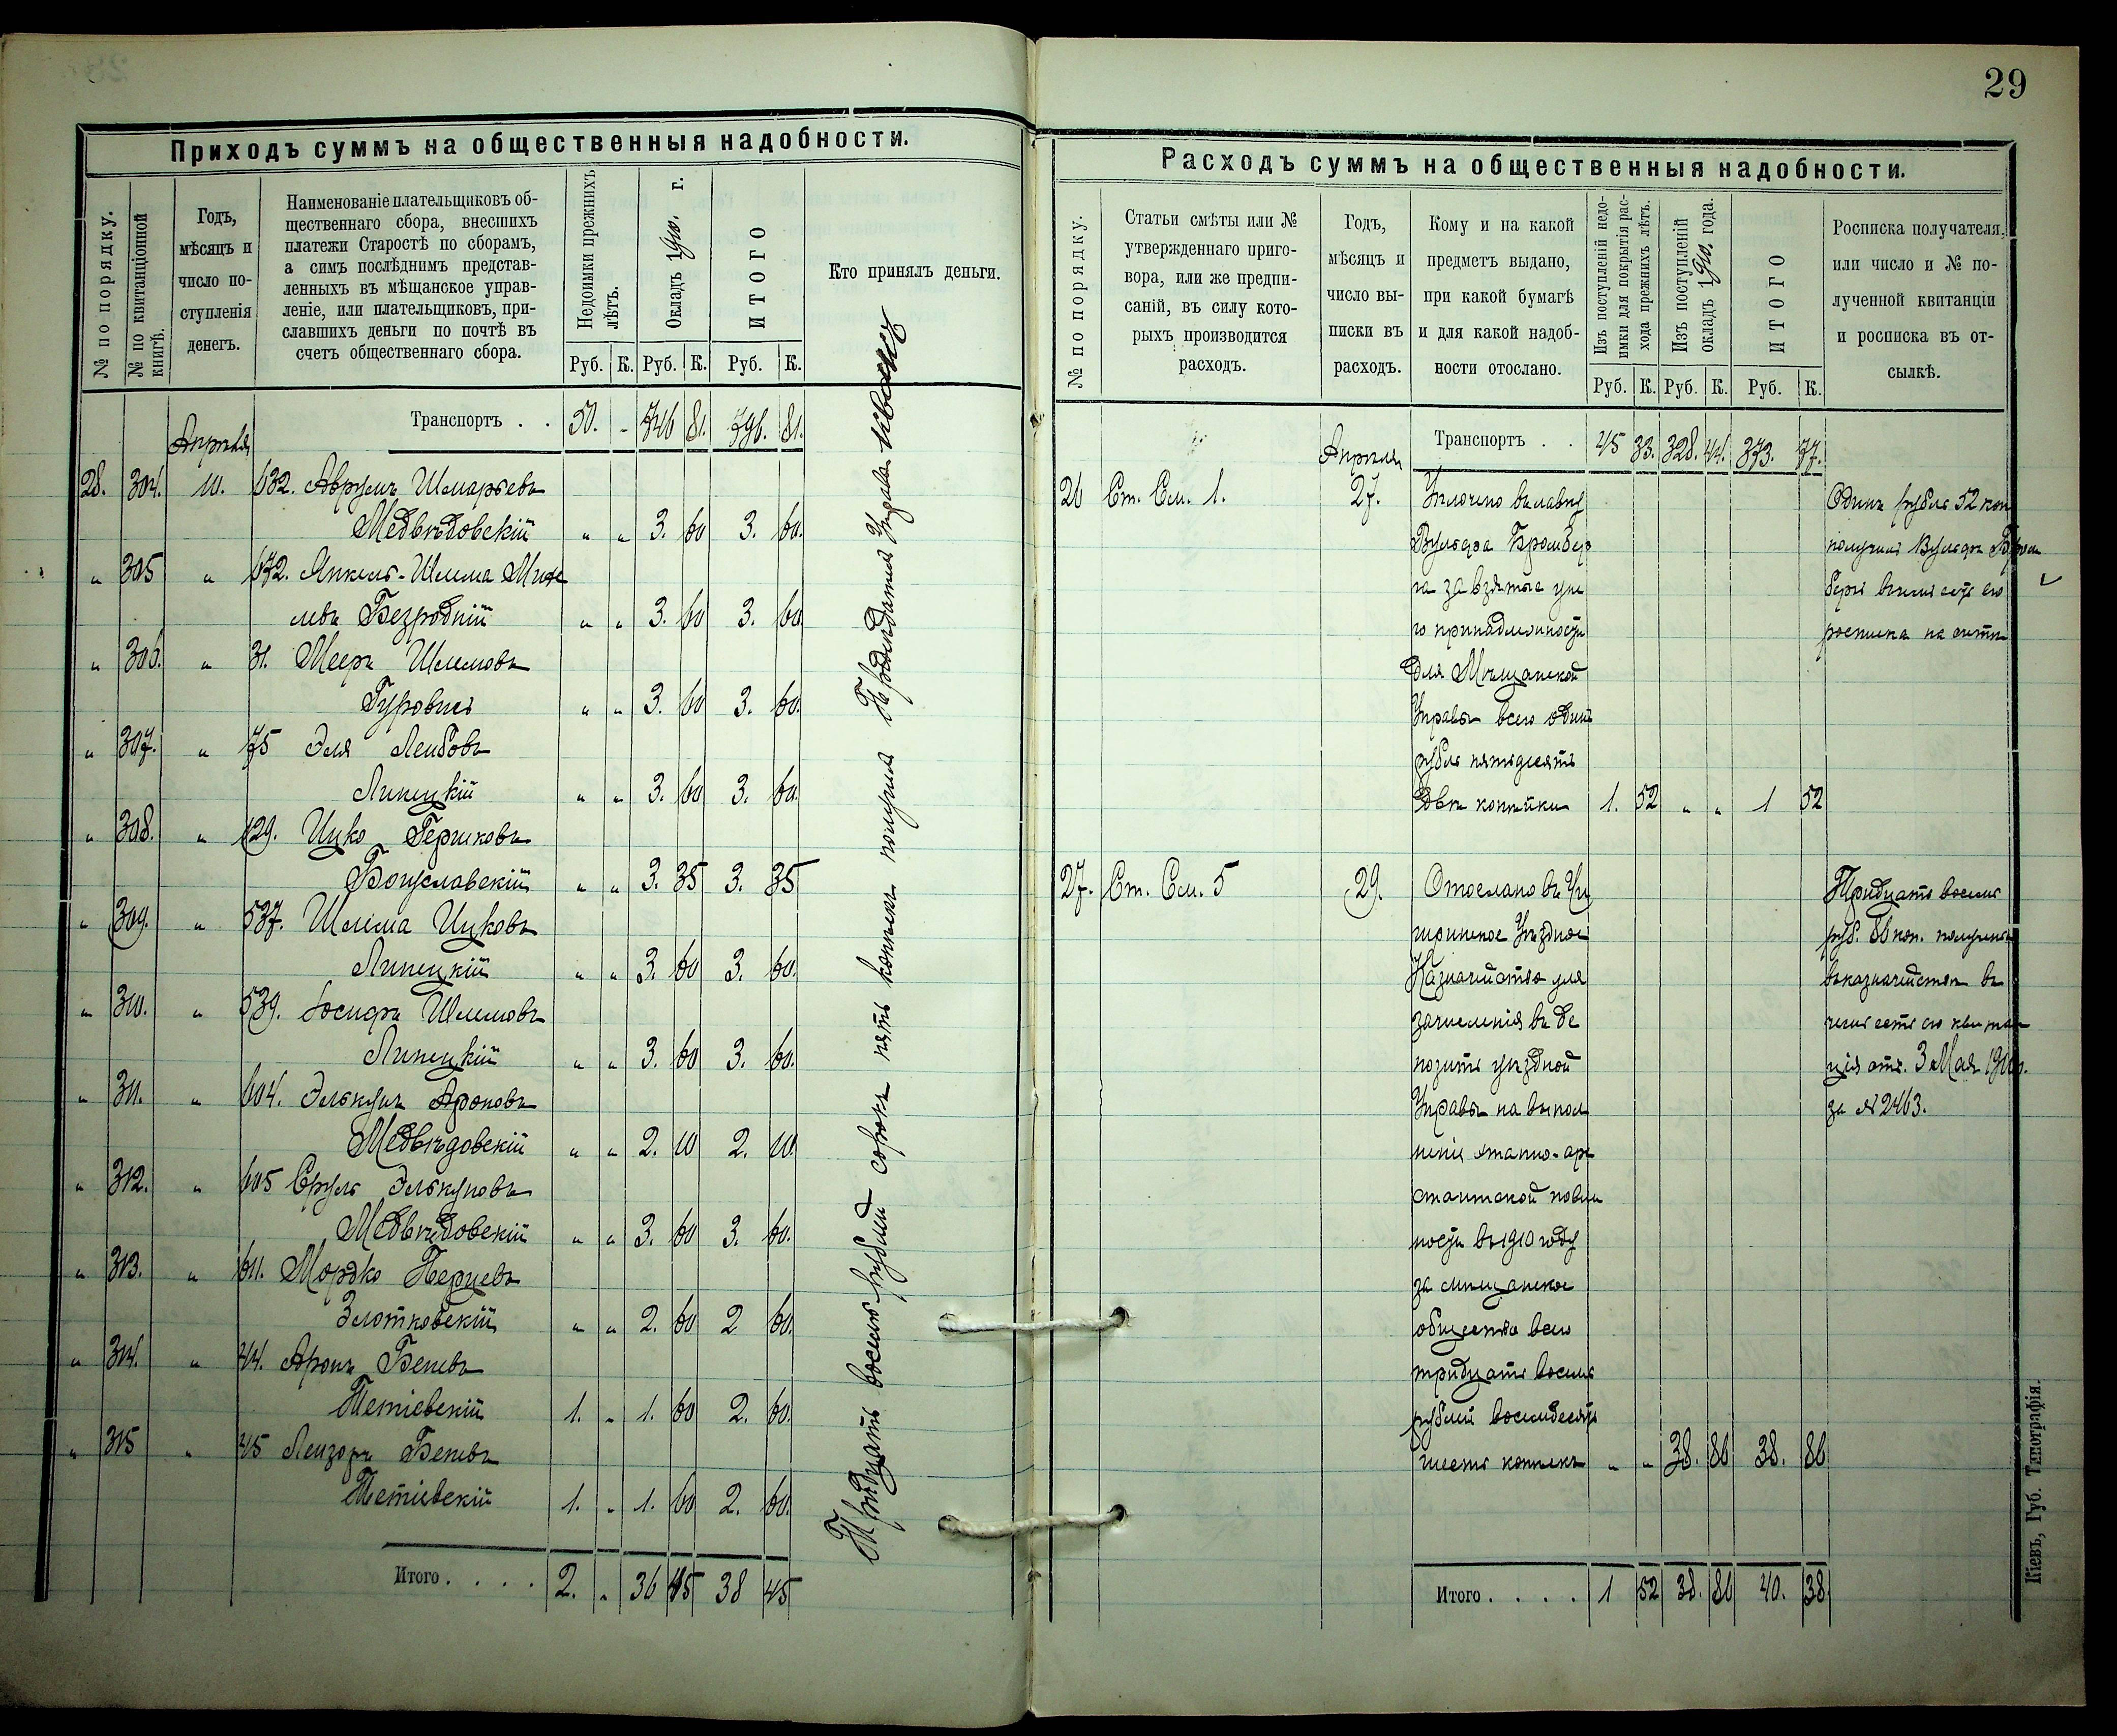 29
Приходъ суммъ на общественныя надобности.
№ по порядку.
№ по квитанціонной книгѣ.
Годъ, мѣсяцъ и число поступленія денегъ.
Наименованіе плательщиковъ об-
щественнаго сбора, внесшихъ
платежи Старостѣ по сборамъ,
а симъ послѣднимъ представ-
ленныхъ въ мѣщанское управ-
леніе, или плательщиковъ, при-
славшихъ деньги по почтѣ въ
счетъ общественнаго сбора.
Недоимки прежнихъ лѣтъ.
Окладъ 1910. г.
ИТОГО
Кто принялъ деньги.
Руб. К. Руб. К. Руб. К.
Транспортъ . . 50. - 746 81. 796. 81.
Апрѣля
28. 304. 10. 632. Аврумъ Шмарьевъ
Медвѣдовскій " " 3. 60 3. 60.
" 305 " 672. Янкель-Шлема Михе
левъ Безродній " " 3. 60 3. 60.
" 306. " 31. Мееръ Шлемовъ
Гуровичъ " " 3. 60 3. 60.
" 307. " 75 Эля Лейбовъ
Липецкій " " 3. 60 3. 60.
" 308. " 129. Ицко Гершковъ
Богуславскій " " 3. 35 3. 35
" 309. " 537. Шлема Ицковъ
Липецкій " " 3. 60 3. 60.
" 310. " 539. Іосифъ Шлемовъ
Липецкій " " 3. 60 3. 60.
" 311. " 604. Элькунъ Ароновъ
Медвѣдовскій " " 2. 10 2. 10.
" 312. " 605 Сруль Элькуновъ
Медвѣдовскій " " 3. 60 3. 60.
" 313. " 611. Мордко Перцевъ
Злотковскій " " 2. 60 2 60.
" 314. " 44. Аронъ Беневъ
Тетіевскій 1. " 1. 60 2. 60.
" 315 " 45 Лейзоръ Беневъ
Тетіевскій 1. " 1. 60 2. 60.
Итого . . . . 2. " 36 45 38 45
Тридцать восемь рублей сорокъ пять копѣекъ получилъ
Расходъ суммъ на общественныя надобности.
№ по порядку.
Статьи смѣты или №
утвержденнаго приго-
вора, или же предпи-
саній, въ силу кото-
рыхъ производится
расходъ.
Годъ,
мѣсяцъ и
число вы-
писки въ
расходъ.
Кому и на какой
предметъ выдано,
при какой бумагѣ
и для какой надоб-
ности отослано.
Изъ поступленій недо-
имки для покрытія рас-
хода прежнихъ лѣтъ.
Изъ поступленій
окладъ 1910. года.
ИТОГО
Росписка получателя,
или число и № по-
лученной квитанціи
и росписка въ от-
сылкѣ.
Руб. К. Руб. К. Руб. К.
Транспортъ . . 45 33. 328. 44. 373. 77.
Апрѣля
26 Ст. См. 1. 27. Уплочено въ лавку
Вульфа Бромбер
га за взятые у не
го принадлежности
для Мѣщанской
Управы всего одинъ
рубль пятьдесятъ
двѣ копѣйки 1. 52 " " 1 52
Одинъ рубль 52 коп
получилъ Вульфъ Бром
бергъ въ чемъ есть его
росписка на счетѣ
27. Ст. См. 5 29. Отослано въ Чи
гиринское Уѣздное
Казначейство для
зачисленія въ де
позитъ уѣздной
Управы на выпол
неніе этапно-аре
стантской повин
ности въ 1910 году
за мѣщанское
общество всего
тридцать восемь
рублей восемьдесятъ
шесть копѣекъ " " 38. 86 38. 86
Тридцать восемь
руб. 86 коп. получены
въ казначействѣ въ
чемъ есть его квитан
ція отъ 3 Мая 1910 г.
за № 2463.
Итого . . . . 1 52 38. 86 40. 38.
Кіевъ, Губ. Типографія.